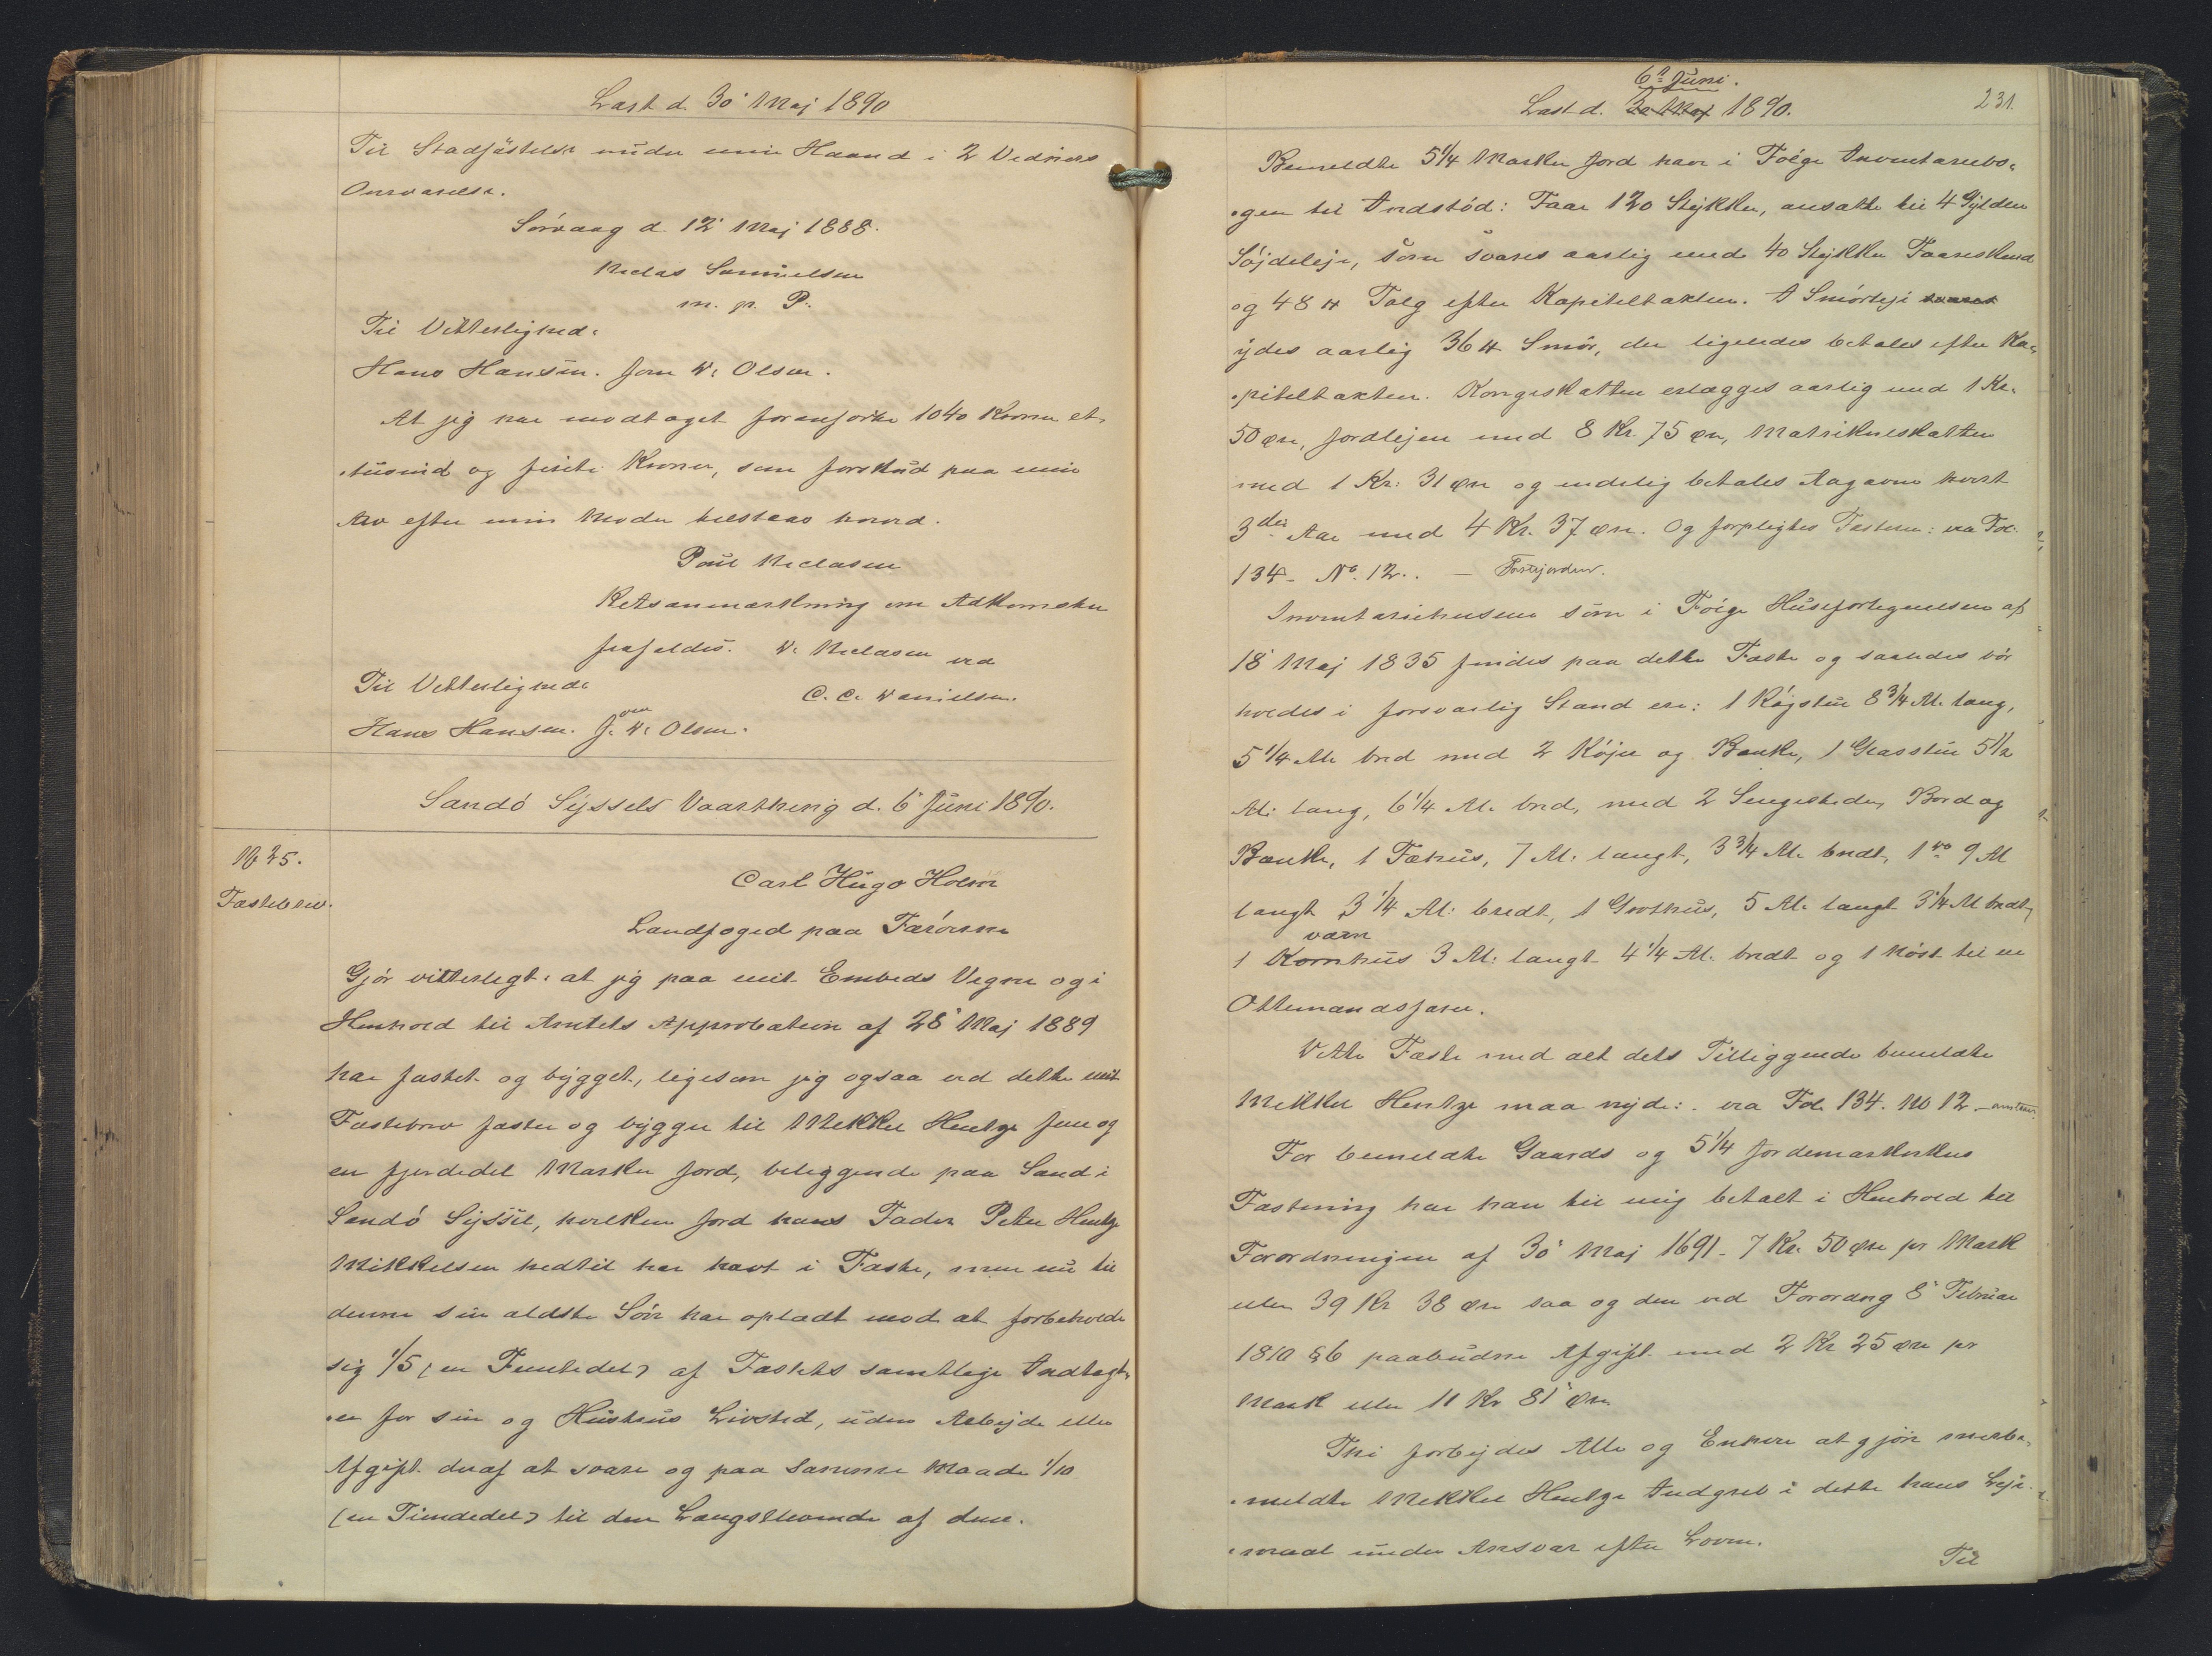 Læst d. 30' Maj 1890
Til Stadfästelse under min Haand i 2 Vidners
Overværelse.
Sørvaag d. 12' Maj 1888.
Niclas Samuelsen
m. p. P.
Til Vitterlighed:
Hans Hansen. Joen D. Olsen.
At jeg har modtaget foranførte 1040 Kroner et-
tusind og firti Kroner, som forskud paa min
Arv efter min Moder tilstaas herved.
Poul Niclasen
Retsanmærkning om Adkomsten
frafaldes. D. Niclasen
ved
C. C. Danielsen.
Til Vitterlighed:
Hans Hansen. Joen D. Olsen.
Sandø Syssels Vaarthing d. 6' Juni 1890.
1625.
Fæstebrev.
Carl Hugo Holm
Landfoged paa Færøerne
Gjør vitterligt: at jeg paa mit Embeds Vegne og i
Henhold til Amtets Approbation af 28' Maj 1889
har fæstet og bygget, ligesom jeg ogsaa ved dette mit
Fæstebrev fæster og bygger til Mikkel Hentze fem og
en fjerdedel Marker Jord, beliggende paa Sand i
Sandø Syssel, hvilken Jord hans Fader Peter Hentze
Mikkelsen hidtil har havt i Fæste, men nu til
denne sin ældste Søn har opladt mod at forbeholde
sig 1/5 (en Femtedel) af Fæstets samtlige Indtægt-
er for sin og Hustrus Livstid, uden Arbejde eller
Afgift deraf at svare og paa samme Maade 1/10
(en Tiendedel) til den Længstlevende af dem.
6' Juni.
Læst d. 30 Maj 1890.
231.
Bemeldte 5 1/4 Marker Jord har i Følge Inventariebo-
gen til Indstød: Faar 120 Stykker, ansatte til 4 Gylden
Søjdeleje, som svares aarlig med 40 Stykker Faareskind
og 48 ℔ Talg efter Kapitelstaxten. I Smørleje svares
ydes aarlig 36 ℔ Smør, der ligeledes betales efter Ka-
pitelstaxten. Kongeskatten erlægges aarlig med 1 Kr.
50 Øre, Jordlejen med 8 Kr. 75 Øre, Matrikulskatten
med 1 Kr. 31 Øre og endelig betales Aagavne hvert
3die Aar med 4 Kr. 37 Øre. Og forpligtes Fæsteren: va Fol.
134 - No. 12. . — Fæstejorden.
Inventariehusene som i Følge Husefortegnelsen af
18' Maj 1835 findes paa dette Fæste og saaledes bør
holdes i forsvarlig Stand ere: 1 Røgstue 8 3/4 Al. lang,
5 1/4 Al. bred med 2 Køjer og Bænke, 1 Glasstue 5 1/2
Al: lang, 6 1/4 Al. bred, med 2 Sengesteder, Bord og
Bænke, 1 Fæhus, 7 Al: langt, 3 3/4 Al. bredt, 1 do 9 Al
langt 3 1/4 Al: bredt, 1 Grothus, 5 Al. langt 3 1/4 Al bredt,
værn
1 Kornhus 3 Al: langt 4 1/4 Al. bredt og 1 Nøst til en
Ottemandsfarer.
Dette Fæste med alt dets Tilliggende bemeldte
Mikkel Hentze maa nyde: . vea Fol. 134. No 12 -
For bemeldte Gaards og 5 1/4 Jordemarkers
Fæstning har han til mig betalt i Henhold til
Forordningen af 30' Maj 1691 - 7 Kr. 50 Øre pr Mark
eller 39 Kr 38 Øre saa og den ved Forordng 8' Februar
1810 § 6 paabudne Afgift med 2 Kr 25 Øre pr
Mark eller 11 Kr 81 Øre
Thi forbydes Alle og Enhver at gjøre merbe-
meldte Mikkel Hentze Indgreb i dette hans Leje-
maal under Ansvar efter Loven.
Til